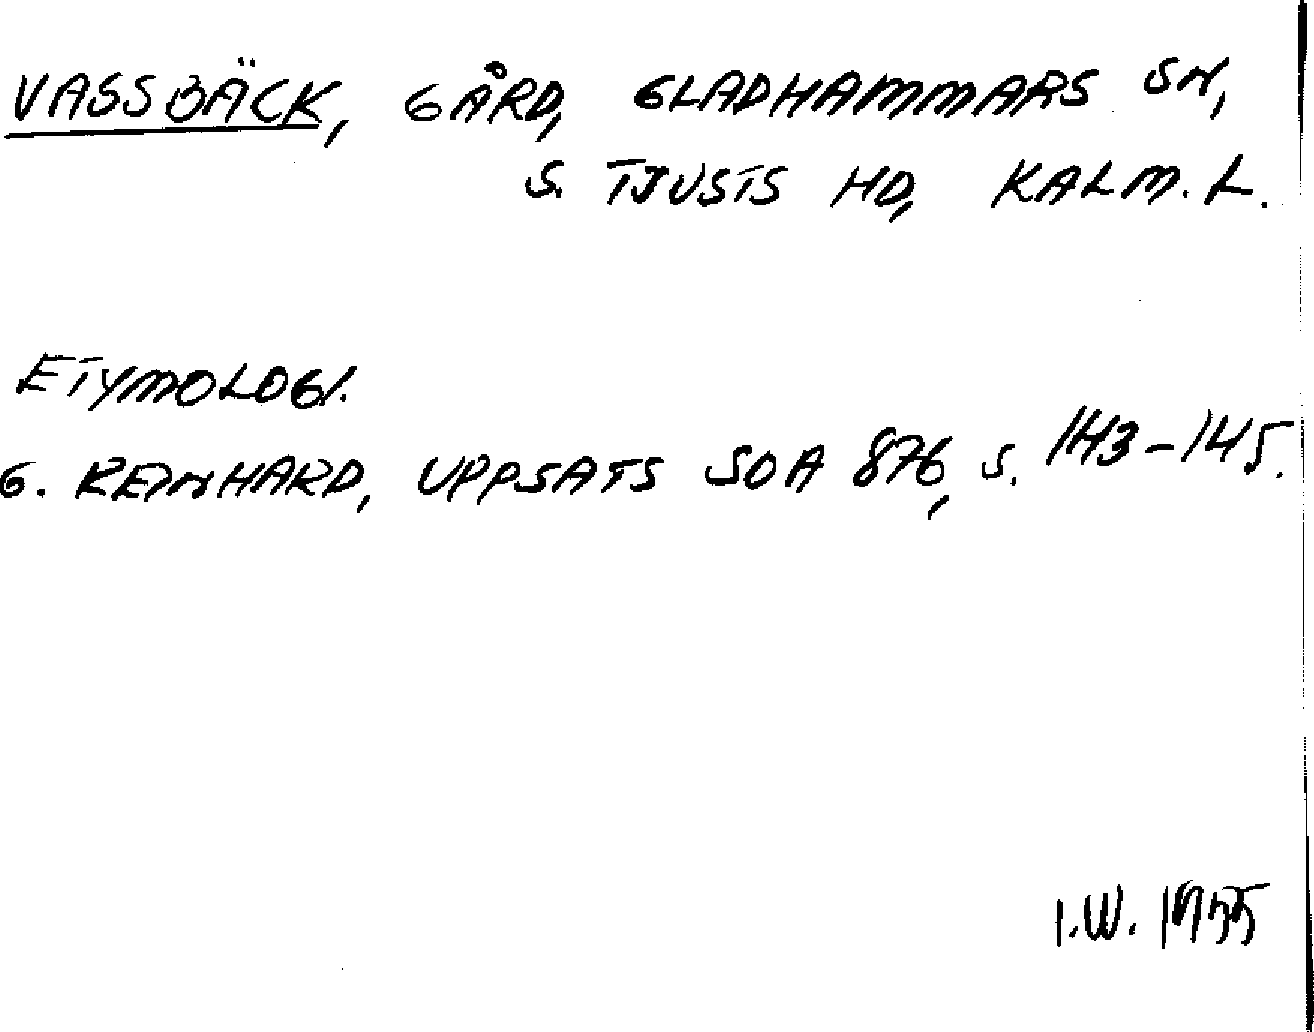 VASSBÄCK, GÅRD, GLADHAMMARS SN,
S. TJUSTS HD, KALM. L.
ETYMOLOGI.
G. REINHARD, UPPSATS SOA 876, S. 143-145.
I.W. 1955